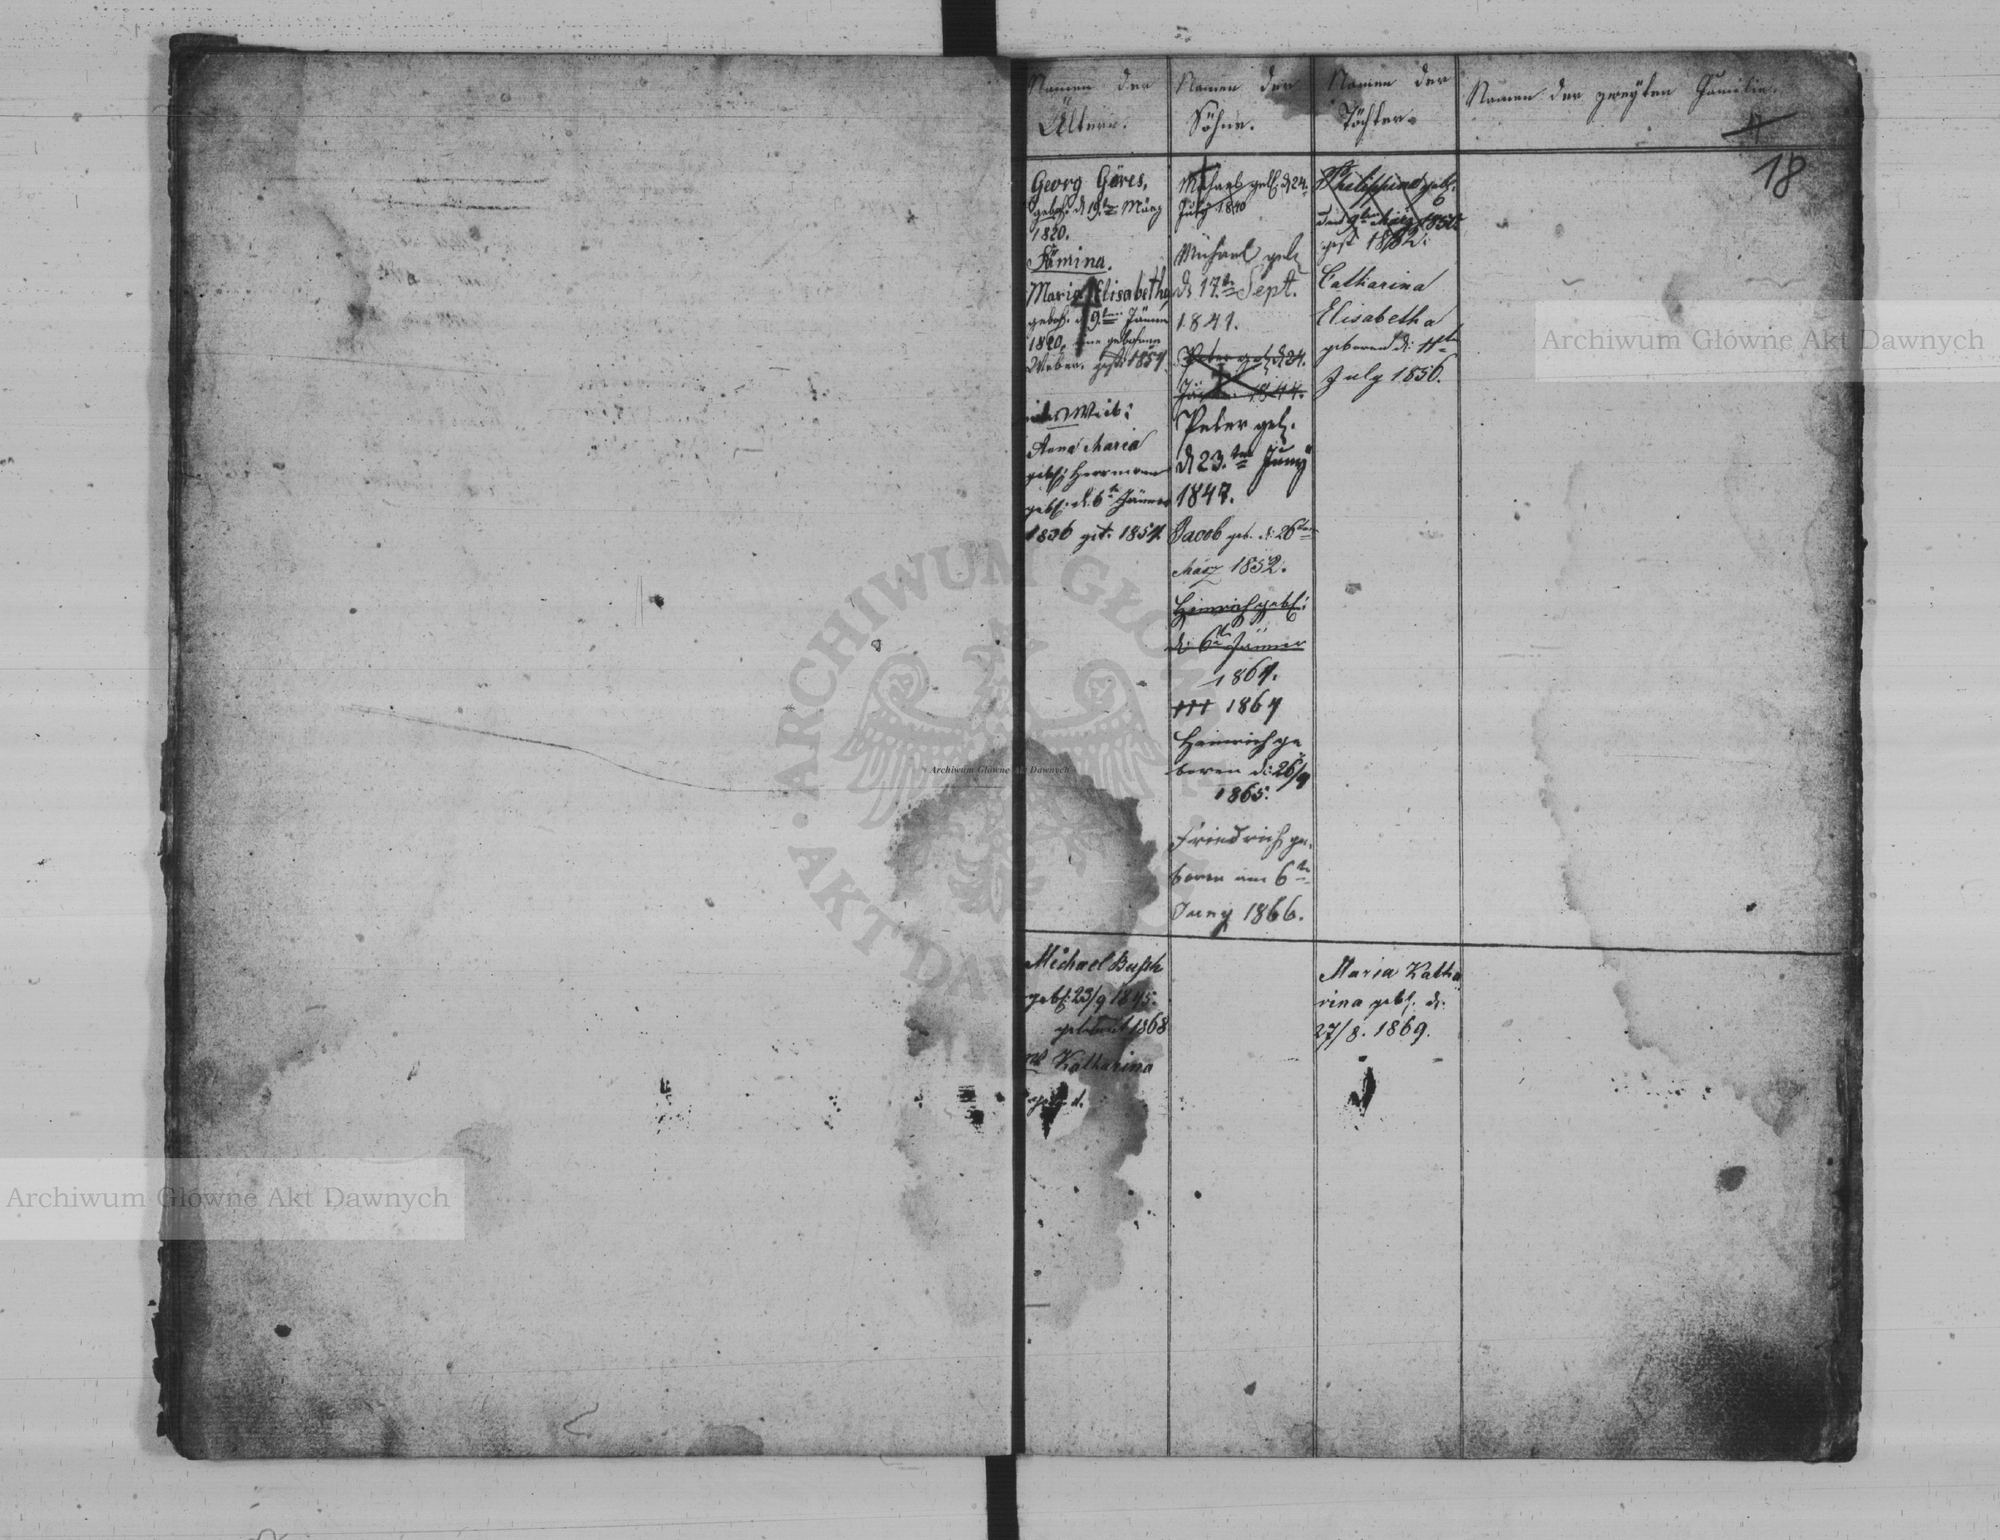 Namen der
Ältern.
Namen der
Söhne.
Namen der
Töchter.
Namen der zweyten Familie.
17
18
Georg Göres,
geboh. d 19.te März
1820.
Fämina.
Maria Elisabetha
geboh. d 9.te Jänner
1820, eine geborene
Weber. gest: 1857.
Weib:
Anna Maria
gebh: Herrmann
gebh: d. 6te Jänner
1836 get. 1857.
Michael geb. d 24.
July 1840
Michael geb.
d 17.te Sept.
1841.
Peter geb. d 24.
Jänner 1844.
Peter geb.
d 23.ten Juny
1847.
Jacob geb. d: 26ten
März 1852.
Heinrich gebh:
d: 6te Jänner
1864.
††† 1864
Heinrich ge
boren d: 26/9
1865.
Friedrich ge-
boren am 6te
Juny 1866.
Philippina geb.
den 9te März 1850.
gest 1852:
Catharina
Elisabetha
geboren d: 11te
July 1856.
Michael Busch
gebh: 23/9 1845.
getraut 1868
Katharina
geb. d.
Maria Katha
rina gebh. d:
27/8. 1869.
Archiwum Główne Akt Dawnych
Archiwum Główne Akt Dawnych
Archiwum Główne Akt Dawnych
ARCHIWUM GŁÓWNE
AKT DAWNYCH